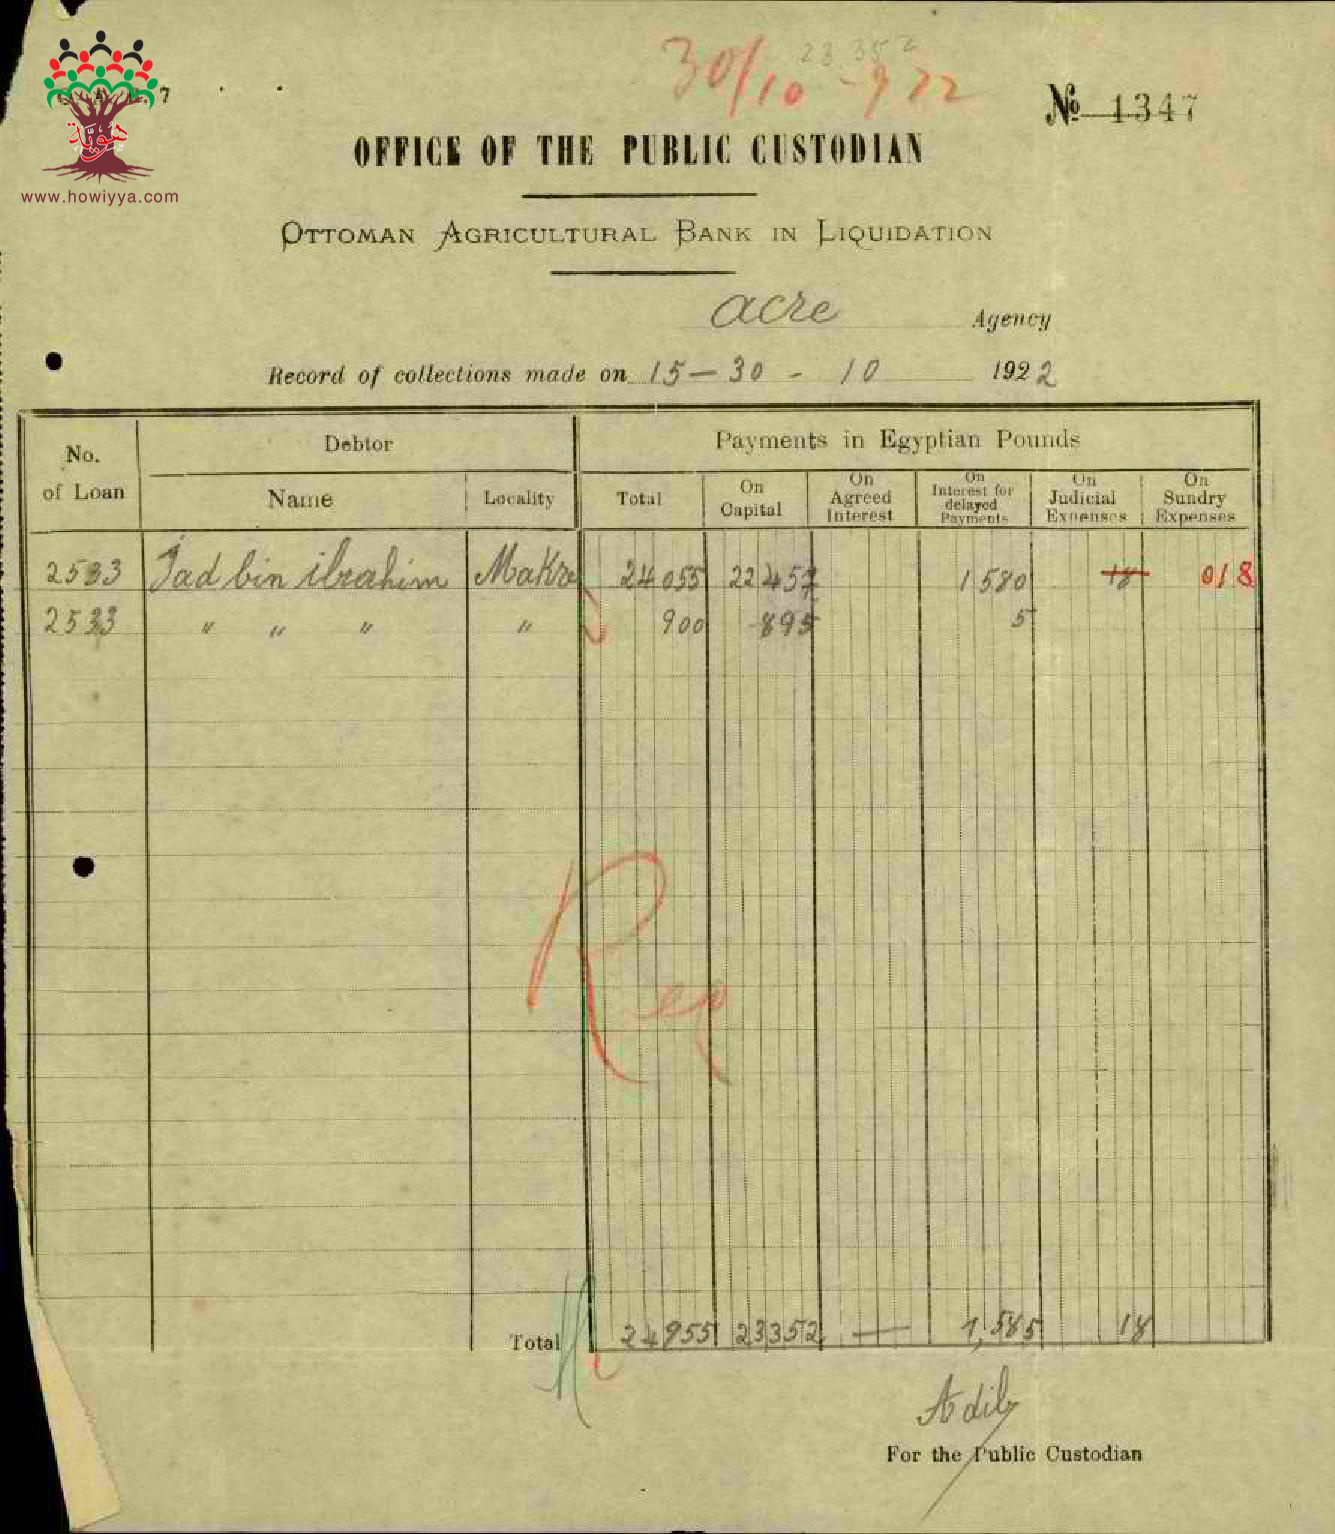 23 352
30/10 - 922
№ 1347
هوية
www.howiyya.com
OFFICE OF THE PUBLIC CUSTODIAN
OTTOMAN AGRICULTURAL BANK IN LIQUIDATION
acre Agency
Record of collections made on 15 - 30 - 10 1922
No. of Loan Debtor Payments in Egyptian Pounds
Name Locality Total On Capital On Agreed Interest On Interest for delayed Payments On Judicial Expenses On Sundry Expenses
2533 Jad bin ibrahim Makre 24 055 22 457 1 580 18 018
2533 " " " " 900 895 5
Total 24 955 23 352 — 1,585 18
Adib
For the Public Custodian